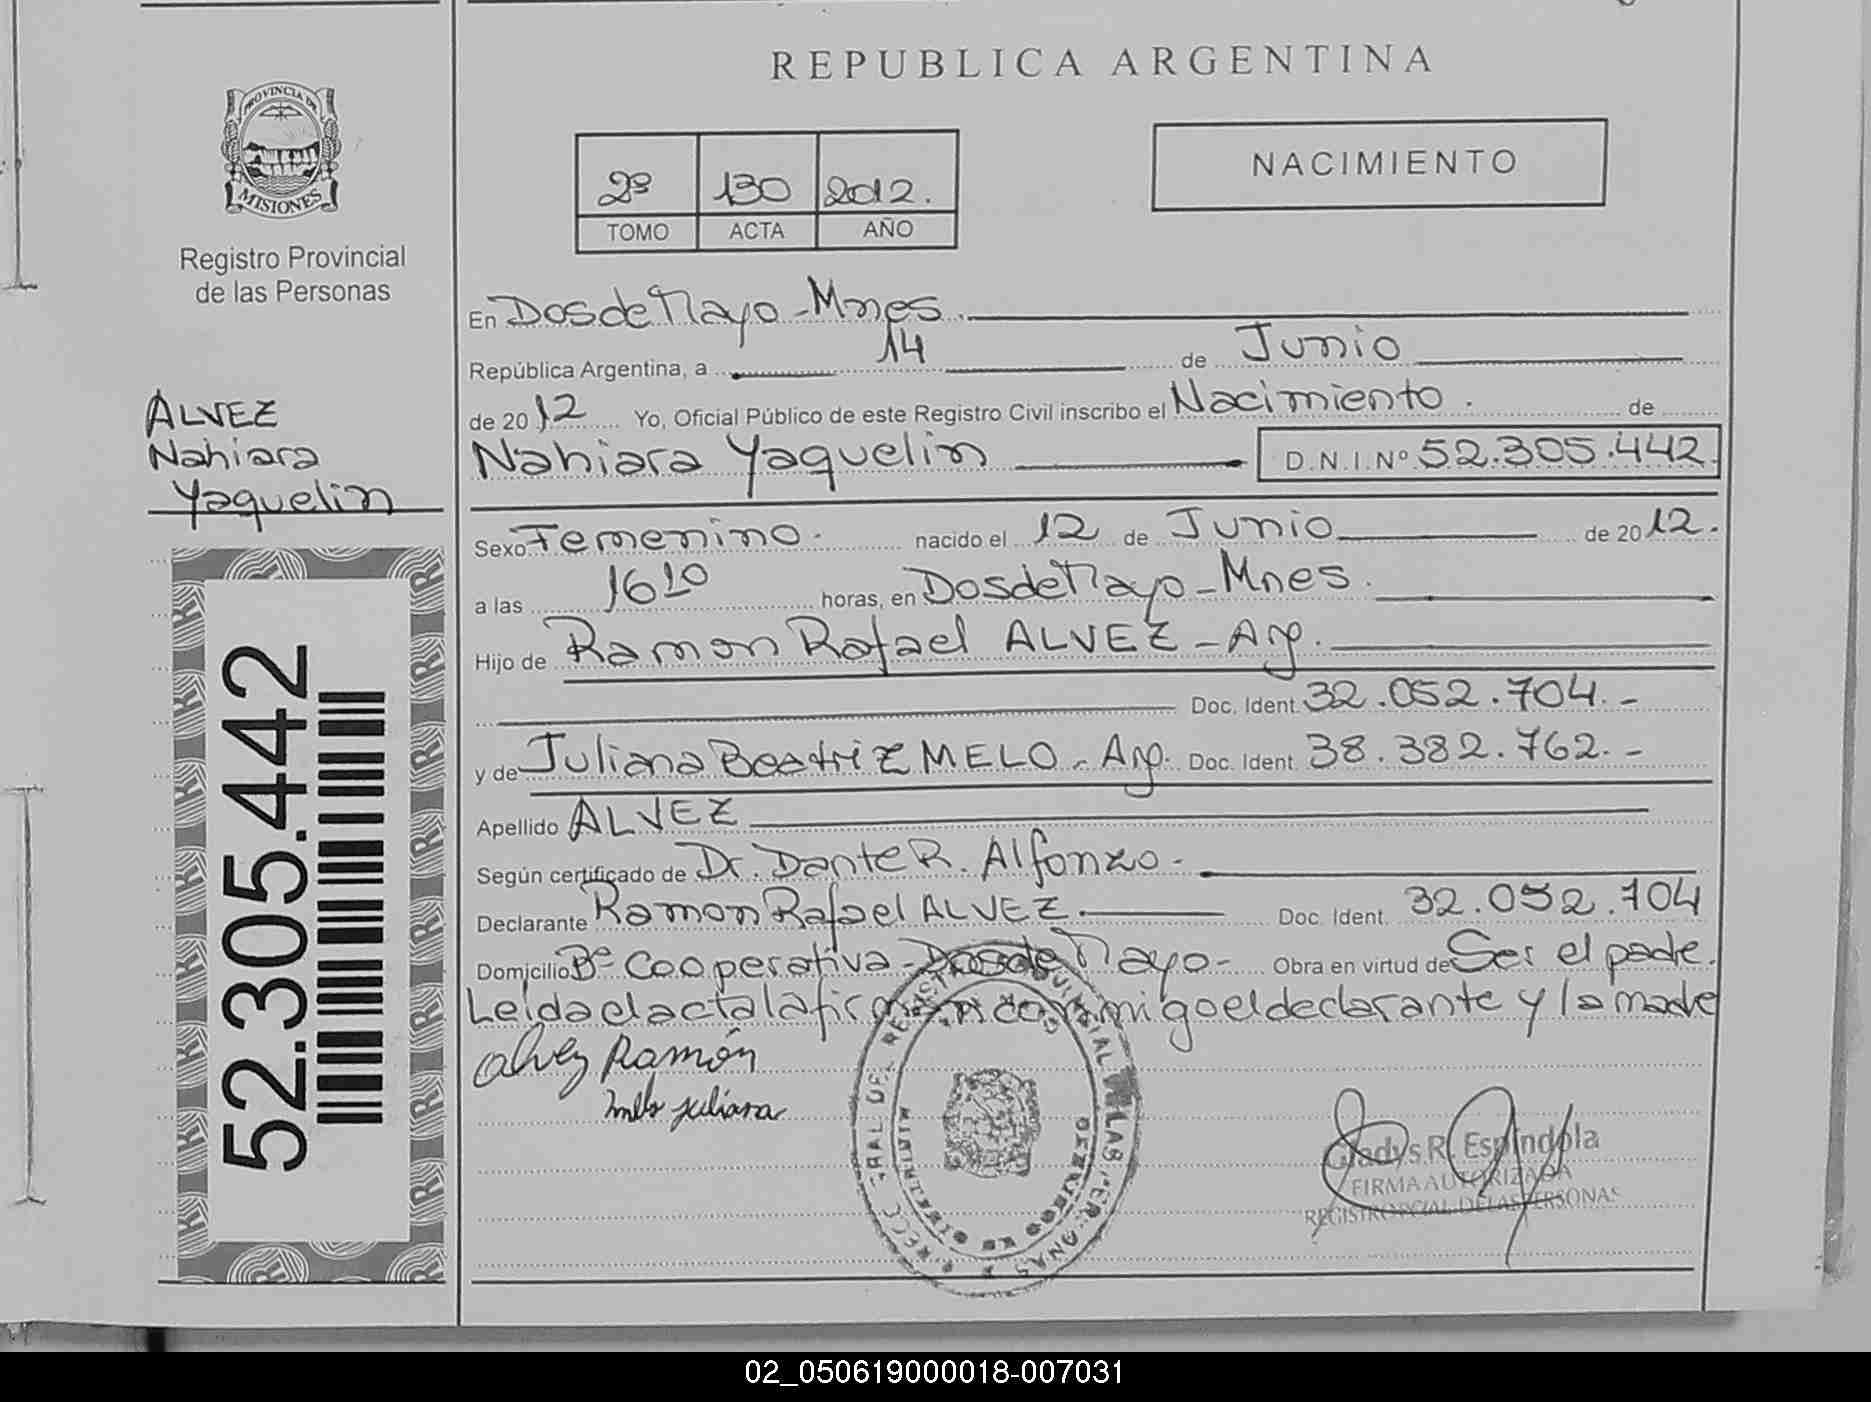 REPUBLICA ARGENTINA
PROVINCIA DE
MISIONES
Registro Provincial
de las Personas
2º 130 2012.
TOMO ACTA AÑO
NACIMIENTO
ALVEZ
Nahiara
Yaquelin
52.305.442
En Dos de Mayo - Mnes.
República Argentina, a 14 de Junio
de 2012 Yo, Oficial Público de este Registro Civil inscribo el Nacimiento. de
Nahiara Yaquelin D.N.I.Nº 52.305.442.
Sexo Femenino. nacido el 12 de Junio de 2012.
a las 1610 horas, en Dos de Mayo - Mnes.
Hijo de Ramon Rafael ALVEZ - Arg.
Doc. Ident. 32.052.704.-
y de Juliana Beatriz MELO - Arg. Doc. Ident. 38.382.762.-
Apellido ALVEZ
Según certificado de Dr. Dante R. Alfonzo-
Declarante Ramon Rafael ALVEZ. Doc. Ident. 32.052.704
Domicilio Bº Cooperativa - Dos de Mayo - Obra en virtud de Ser el padre.
Leida el acta la firman conmigo el declarante y la madre
Alvez Ramón
melo juliana
Gladys R. Espindola
FIRMA AUTORIZADA
REGISTRO PCIAL. DE LAS PERSONAS
02_050619000018-007031